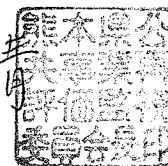 熊本県公
共事業再
評価監視
委員会印